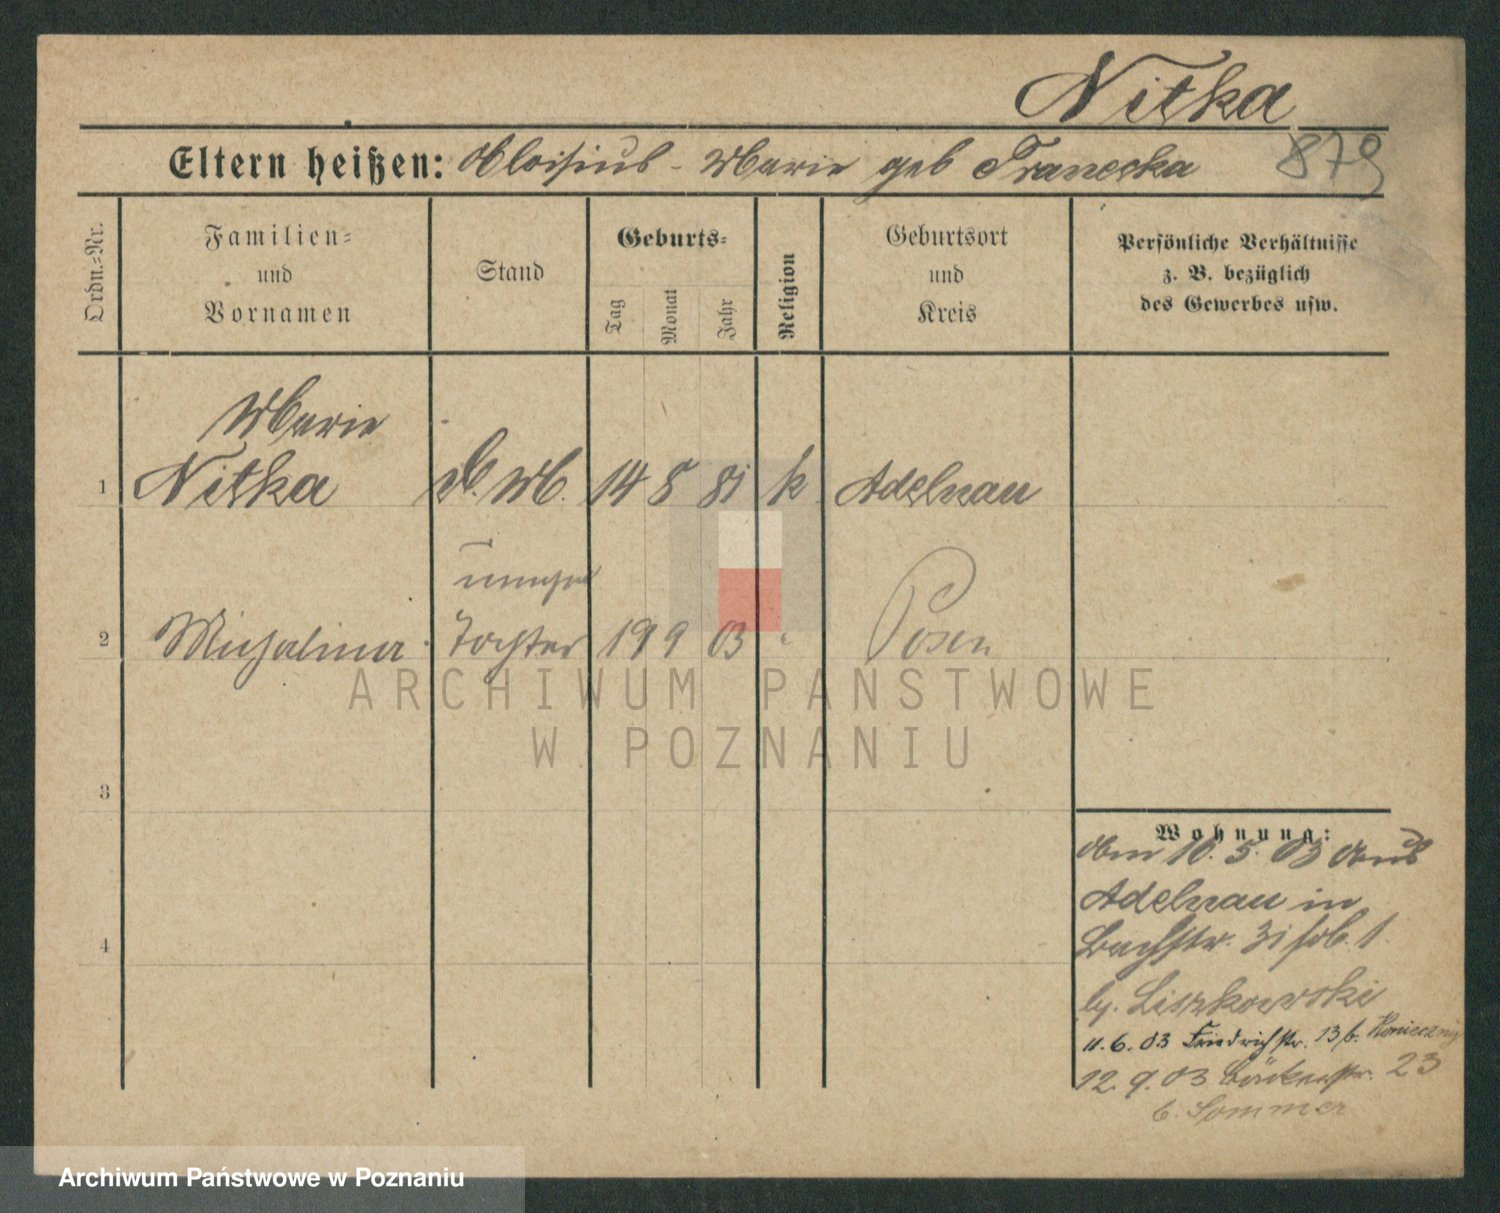 Nitka
Eltern heißen: Aloisius - Marie geb Franecka
879
Ordn.-Nr.
Familien-
und
Vornamen
Stand
Geburts-
Tag
Monat
Jahr
Religion
Geburtsort
und
Kreis
Persönliche Verhältnisse
z. B. bezüglich
des Gewerbes usw.
Marie
1 Nitka D. M. 14 8 81 k Adelnau
2 Michalina Tochter 19 9 03 Posen
3
4
Wohnung:
Am 10. 5. 03 aus
Adelnau in
Bachstr. 31 1
by. Liszkowski
11. 6. 03 Friedrichstr. 13 b. Konieczny
12. 9. 03 Bäckerstr. 23
b. Sommer
ARCHIWUM PAŃSTWOWE
W POZNANIU
Archiwum Państwowe w Poznaniu